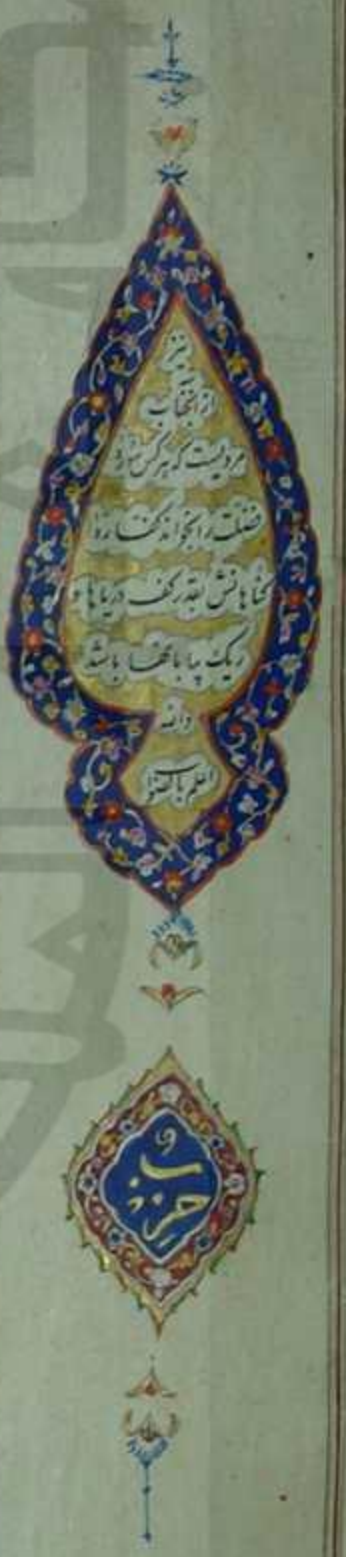 نیز
ازانجناب
مرویست که هر کس سوره
فصلت را بخواند کفاره
گناهانش بقدر کف دریاها و
ریک بیابانها باشد
والله
اعلم بالصواب
حزب